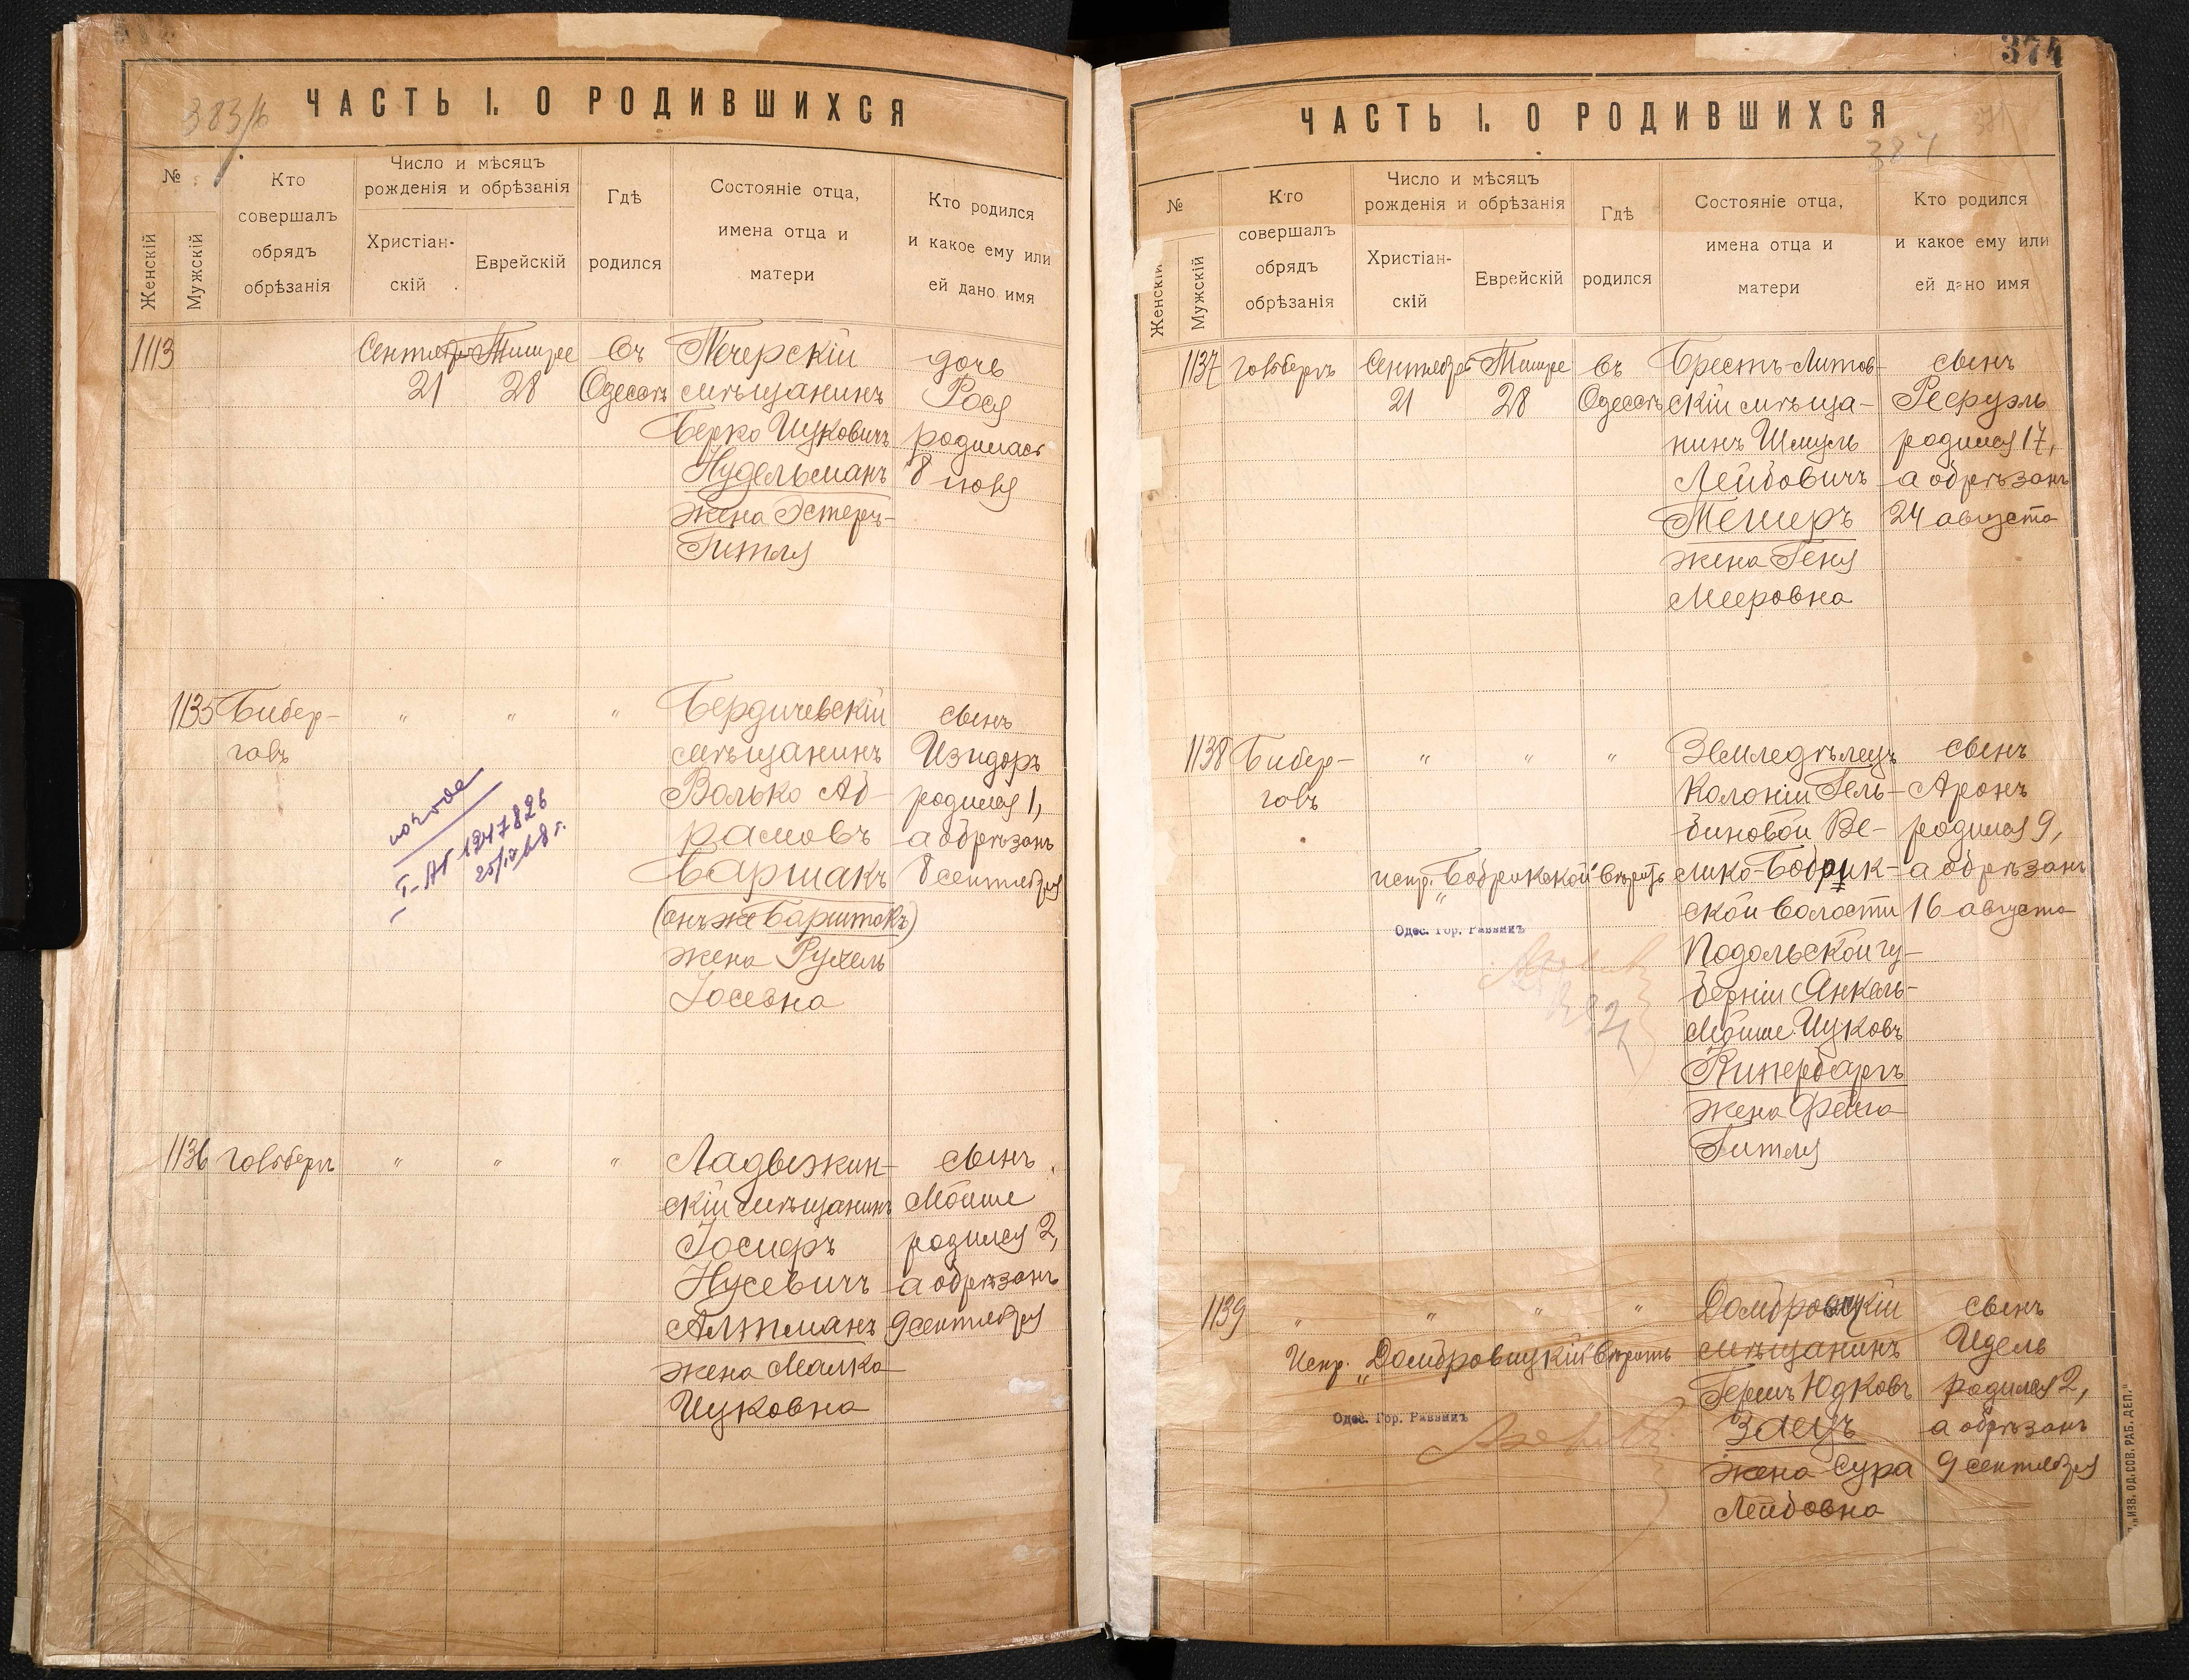 383/б
ЧАСТЬ I. О РОДИВШИХСЯ
№
Женскій
Мужскій
Кто
совершалъ
обрядъ
обрѣзанія
Число и мѣсяцъ
рожденія и обрѣзанія
Христіан-
скій
Еврейскій
Гдѣ
родился
Состояніе отца,
имена отца и
матери
Кто родился
и какое ему или
ей дано имя
1113
Сентября
21
Тишре
28
Въ
Одессѣ
Печерскій
мѣщанинъ
Берко Ицковичъ
Нудельманъ
жена Эстеръ-
Гитля
дочь
Рося
родилась
8 іюня
1135
Бибер-
галь
" " "
Бердичевскій
мѣщанинъ
Волько Аб-
рамовъ
Баршакъ
(онъ же Барштакъ)
жена Рухель
Іосевна
сынъ
Изидоръ
родился 1,
а обрѣзанъ
8 сентября
I-АГ 1247826
1136
" " "
Ладыжин-
скій мѣщанинъ
Іосифъ
Нусевичъ
Алтманъ
жена Малка
Ицковна
сынъ
Мойше
родился 2,
а обрѣзанъ
9 сентября
374
ЧАСТЬ I. О РОДИВШИХСЯ
384
№
Женскій
Мужскій
Кто
совершалъ
обрядъ
обрѣзанія
Число и мѣсяцъ
рожденія и обрѣзанія
Христіан-
скій
Еврейскій
Гдѣ
родился
Состояніе отца,
имена отца и
матери
Кто родился
и какое ему или
ей дано имя
1137
Сентября
21
Тишре
28
Въ
Одессѣ
Брестъ-Литов-
скій мѣща-
нинъ Шмуль
Лейбовичъ
Темеръ
жена Геня
Мееровна
сынъ
Рефуэль
родился 17,
а обрѣзанъ
24 августа
1138
Бибер-
галь
" " "
Земледѣлецъ
Колоніи Гель-
биновой Ве-
лико-Бобрик-
ской волости
Подольской гу-
берніи Янкель-
Мойше Ицковъ
Кипербаргъ
жена Фейга
Гитля
сынъ
Аронъ
родился 9,
а обрѣзанъ
16 августа
испр. "Бобрикской" вѣрить
Одес. Гор. Раввинъ
1139
" " " "
Домбровицкій
мѣщанинъ
Гершъ Юдковъ
Заецъ
жена Сура
Лейбовна
сынъ
Идель
родился 2,
а обрѣзанъ
9 сентября
Испр. "Домбровицкій" вѣрить
Одес. Гор. Раввинъ
"ИЗВ. ОД. СОВ. РАБ. ДЕП."